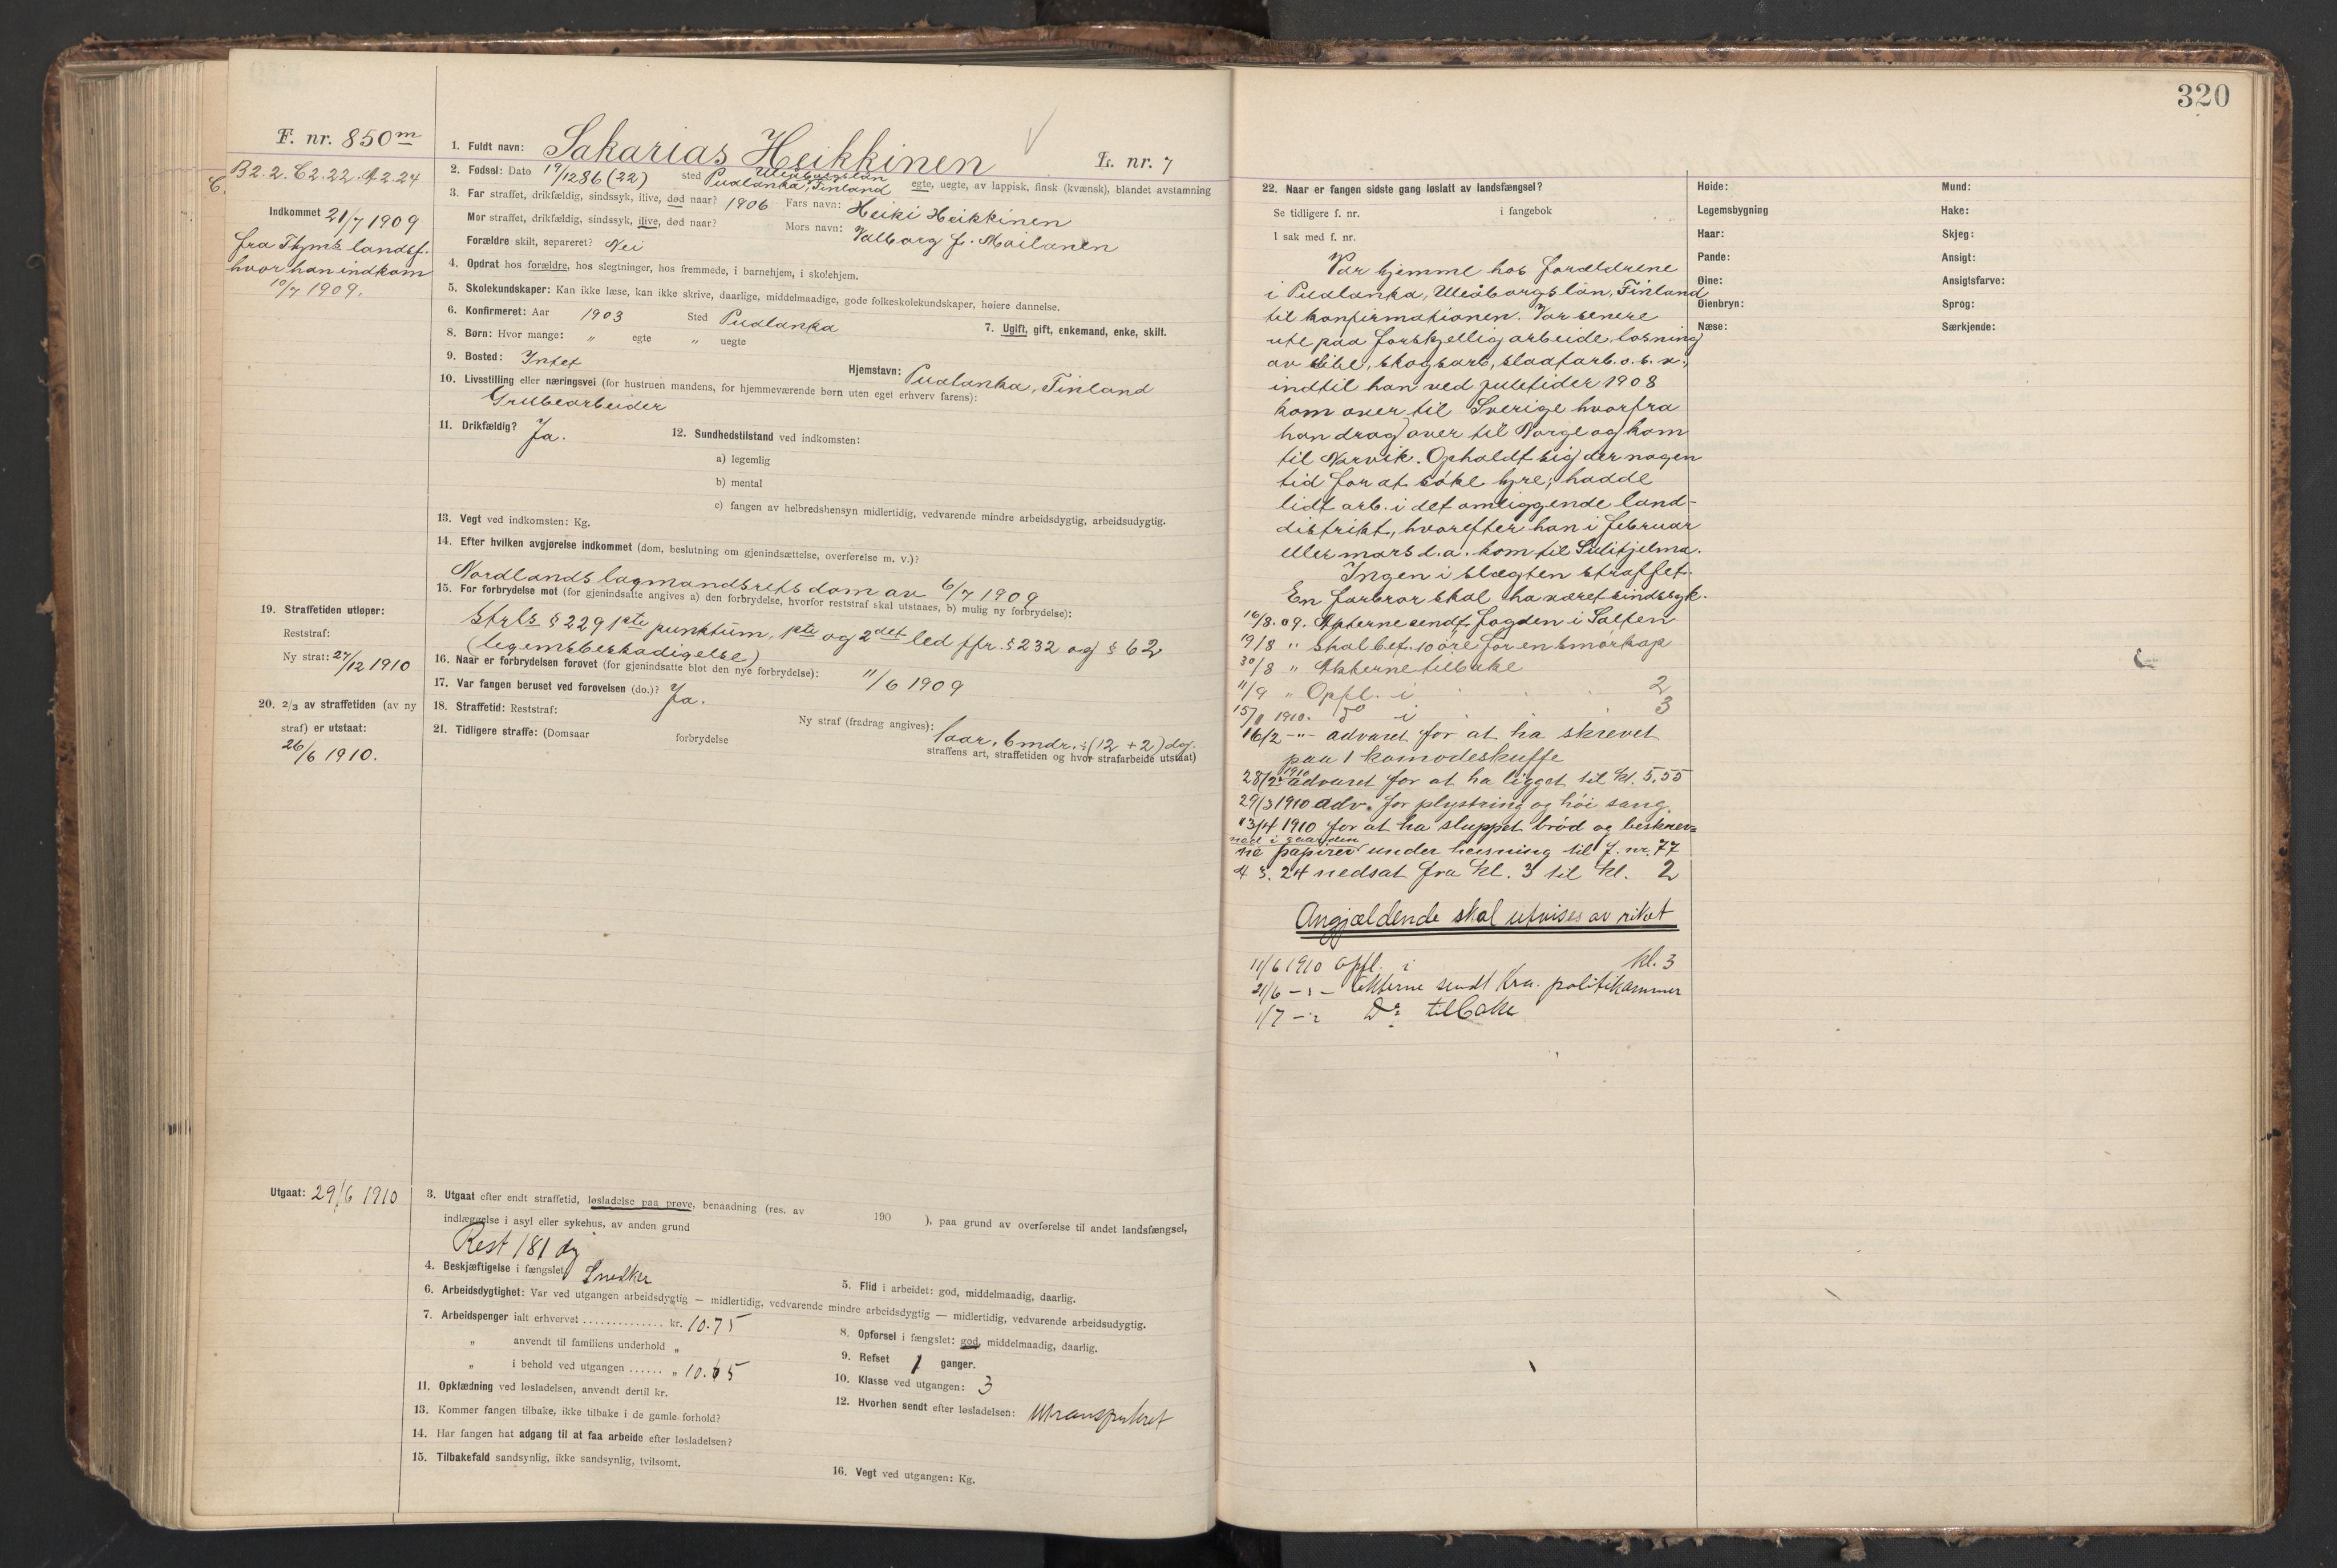 F. nr. 850m
B2.2. C2.22. A2.24
C.
Indkommet 21/7 1909
fra Thjms landsf.
hvor han indkom
10/7 1909.
1. Fuldt navn: Sakarias Heikkinen
L. nr. 7
2. Fødsel: Dato 19/12 86 (22) sted Pudlanka, Uleåborgslän Finland egte, uegte, av lappisk, finsk (kvænsk), blandet avstamning
3. Far straffet, drikfældig, sindssyk, ilive, død naar? 1906 Fars navn: Heiki Heikkinen
Mor straffet, drikfældig, sindssyk, ilive, død naar? Mors navn: Valborg f. Moilanen
Forældre skilt, separeret? Nei
4. Opdrat hos forældre, hos slegtninger, hos fremmede, i barnehjem, i skolehjem.
5. Skolekundskaper: Kan ikke læse, kan ikke skrive, daarlige, middelmaadige, gode folkeskolekundskaper, høiere dannelse.
6. Konfirmeret: Aar 1903 Sted Pudlanka 7. Ugift, gift, enkemand, enke, skilt.
8. Børn: Hvor mange: " egte " uegte
9. Bosted: Intet Hjemstavn: Pudlanka, Finland
10. Livsstilling eller næringsvei (for hustruen mandens, for hjemmeværende børn uten eget erhverv farens):
Grubearbeider
11. Drikfældig? Ja. 12. Sundhedstilstand ved indkomsten:
a) legemlig
b) mental
c) fangen av helbredshensyn midlertidig, vedvarende mindre arbeidsdygtig, arbeidsudygtig.
13. Vegt ved indkomsten: Kg.
14. Efter hvilken avgjørelse indkommet (dom, beslutning om gjenindsættelse, overførelse m. v.)?
Nordlands lagmandsrets dom av 6/7 1909
15. For forbrydelse mot (for gjenindsatte angives a) den forbrydelse, hvorfor reststraf skal utstaaes, b) mulig ny forbrydelse):
Strls § 229 1ste punktum, 1ste og 2det led jfr. § 232 og § 62
(legemsbeskadigelse)
16. Naar er forbrydelsen forøvet (for gjenindsatte blot den nye forbrydelse): 11/6 1909
17. Var fangen beruset ved forøvelsen (do.)? Ja.
18. Straffetid: Reststraf: Ny straf (fradrag angives): 1 aar, 6 mdr. ÷ (12 + 2) dg.
19. Straffetiden utløper:
Reststraf:
Ny straf: 27/12 1910
20. 2/3 av straffetiden (av ny
straf) er utstaat:
26/6 1910.
21. Tidligere straffe: (Domsaar forbrydelse straffens art, straffetiden og hvor strafarbeide utstaat)
Utgaat: 29/6 1910
3. Utgaat efter endt straffetid, løsladelse paa prøve, benaadning (res. av 190 ), paa grund av overførelse til andet landsfængsel,
indlæggelse i asyl eller sykehus, av anden grund
Rest 181 dg
4. Beskjæftigelse i fængslet: Snedker 5. Flid i arbeidet: god, middelmaadig, daarlig.
6. Arbeidsdygtighet: Var ved utgangen arbeidsdygtig — midlertidig, vedvarende mindre arbeidsdygtig — midlertidig, vedvarende arbeidsudygtig.
7. Arbeidspenger ialt erhvervet .............. kr. 10.75
" anvendt til familiens underhold "
" i behold ved utgangen ...... " 10.65
8. Opførsel i fængslet: god, middelmaadig, daarlig.
9. Refset 1 ganger.
10. Klasse ved utgangen: 3
11. Opklædning ved løsladelsen, anvendt dertil kr.
12. Hvorhen sendt efter løsladelsen: Uttransporteret
13. Kommer fangen tilbake, ikke tilbake i de gamle forhold?
14. Har fangen hat adgang til at faa arbeide efter løsladelsen?
15. Tilbakefald sandsynlig, ikke sandsynlig, tvilsomt.
16. Vegt ved utgangen: Kg.
320
22. Naar er fangen sidste gang løslatt av landsfængsel?
Se tidligere f. nr. i fangebok
I sak med f. nr.
Var hjemme hos forældrene
i Pudlanka, Uleåborgslän, Finland
til konfirmationen. Var senere
ute paa forskjellig arbeide, losning
av skibe, skogsarb, sladtarb. o. s. v.,
indtil han ved juletider 1908
kom over til Sverige hvorfra
han drog over til Norge og kom
til Narvik. Opholdt sig der nogen
tid for at søke hyre; hadde
lidt arb. i det omliggende land-
distrikt, hvorefter han i februar
eller mars d.a. kom til Sulitjelma.
Ingen i slægten straffet.
En farbror skal ha været sindssyk.
16/8. 09. Akterne sendt fogden i Salten
19/8 " Skal bet. 10 øre for en smørkop
30/8 " Akterne tilbake
11/9 " Opfl. i 2
15/1 1910. do i 3
16/2 -"- advaret for at ha skrevet
paa 1 komodeskuffe
28/2 1910 advaret for at ha ligget til kl. 5,55
29/3 1910 adv. for plystring og høi sang.
13/4 1910 for at ha sluppet brød og beskrev=
ne papirer ned i gaarden under heisning til f. nr. 77
4 § 24 nedsat fra kl. 3 til kl. 2
Angjældende skal utvises av riket
11/6 1910 opfl. i kl. 3
21/6 -"- Akterne sendt Kra. politikammer
1/7 -"- Do tilbake
Høide:
Legemsbygning
Haar:
Pande:
Øine:
Øienbryn:
Næse:
Mund:
Hake:
Skjeg:
Ansigt:
Ansigtsfarve:
Sprog:
Særkjende: